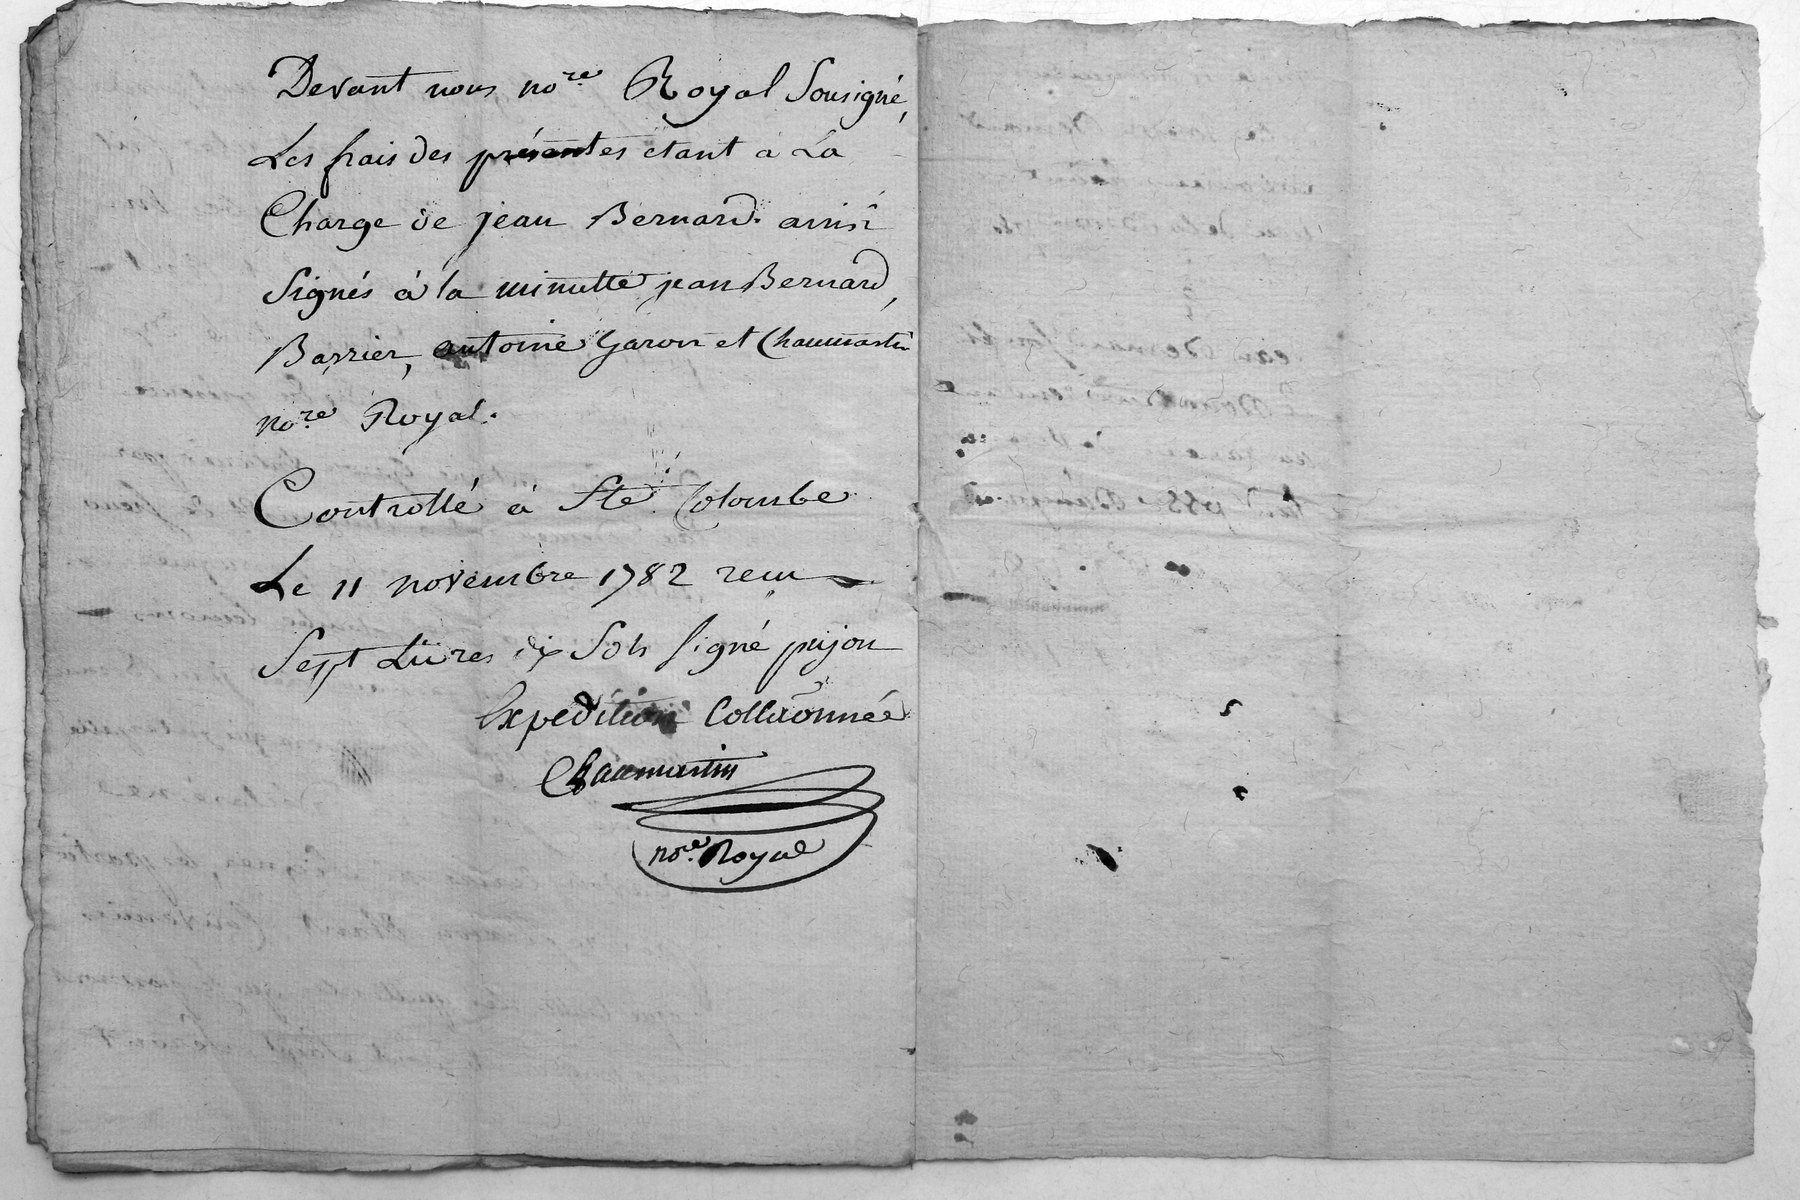 Devant nous no.re Royal Sousigné,
Les frais des présentes etant a La
Charge de jean Bernard. ainsi
Signés à la minutte jean Bernard,
Barrier, antoine Garon et Chaumartin
no.re Royal.
Controllé à Ste Colombe
Le 11 novembre 1782 recu
Sept Livres dix Sols signé pujon
Expedition Collaõnnée
Chaumartin
no.re Royal